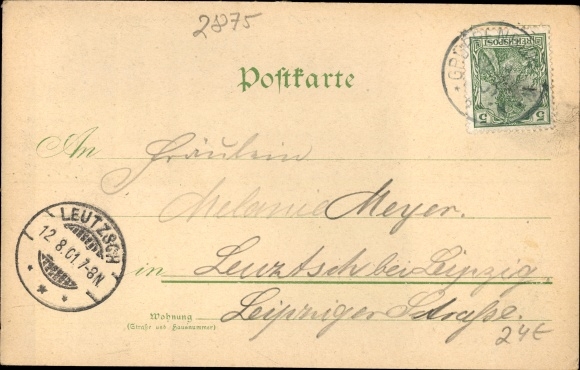 28075
REICHSPOST
5 5
Postkarte
An Fräulein
Melanie Meyer.
LEUTZSCH
12.8.01.7-8N
in Leuztsch bei Leipzig
Leipziger Straße.
Wohnung
(Straße und Hausnummer)
24€